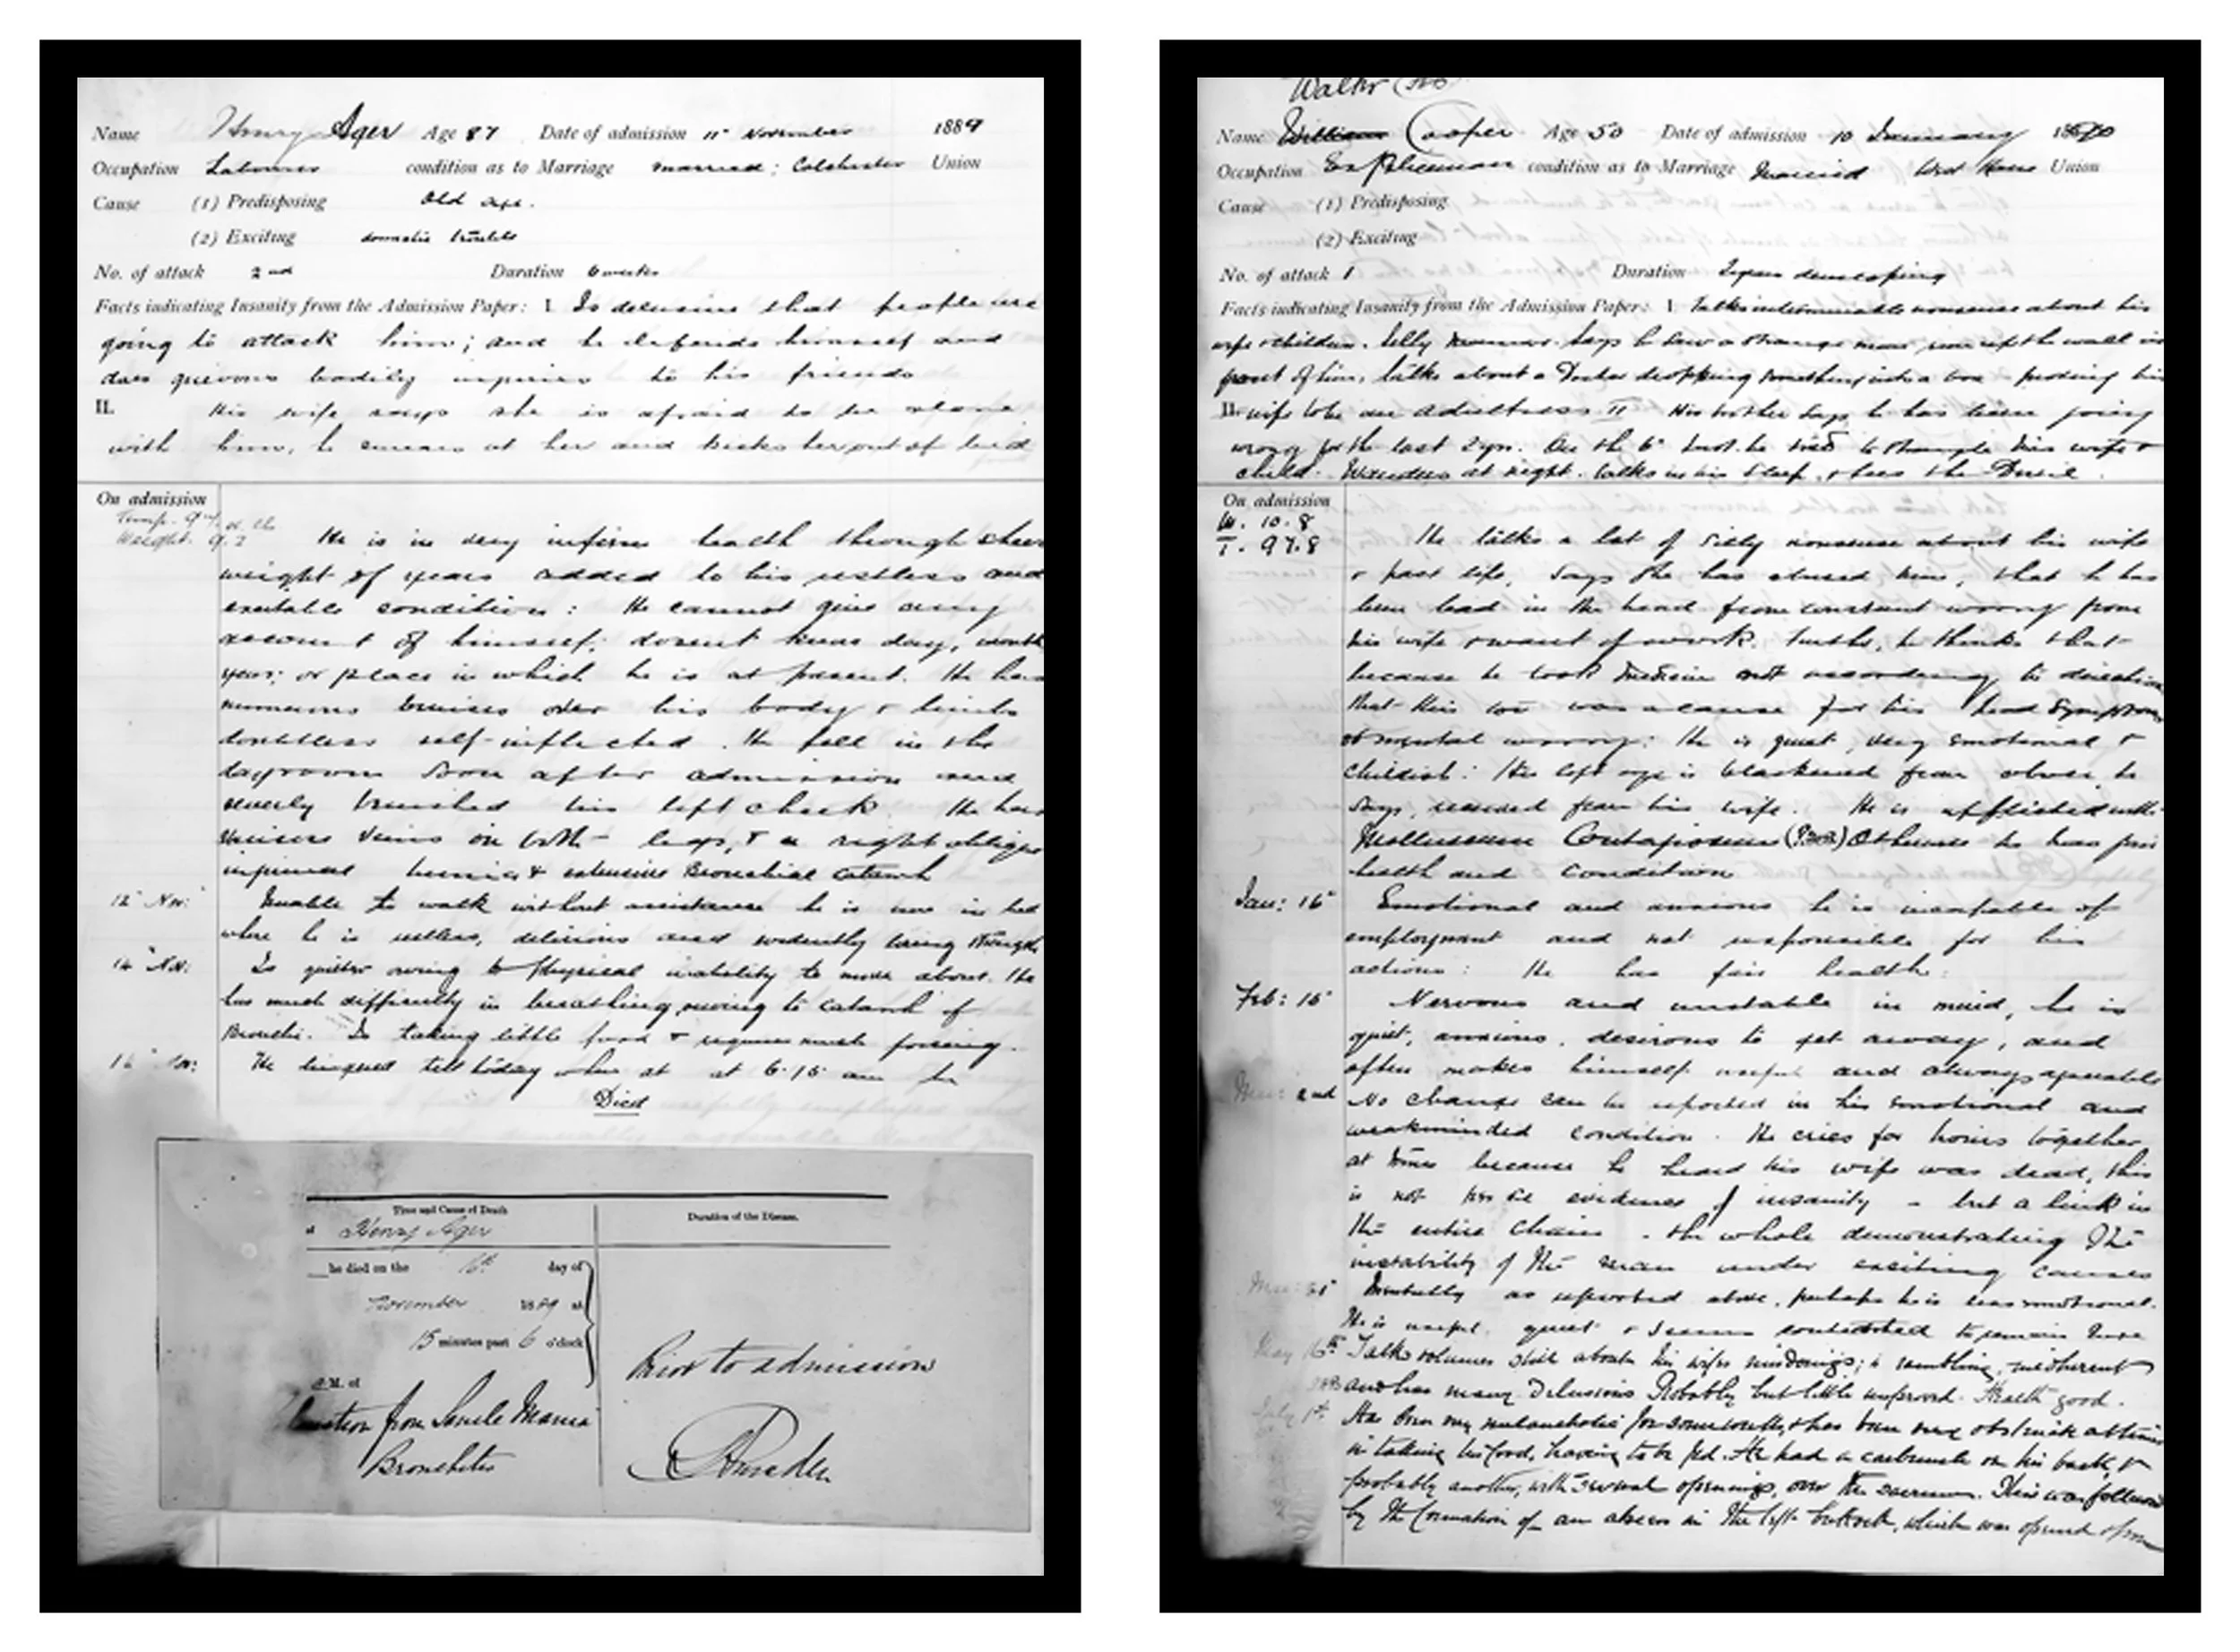 Name Henry Ager Age 87 Date of admission 11th November 1889
Occupation Labourer condition as to Marriage married; Colchester Union
Cause (1) Predisposing Old age.
(2) Exciting domestic troubles
No. of attack 2nd Duration 6 weeks
Facts indicating Insanity from the Admission Paper: I. Is delusions that people are
going to attack him; and he defends himself and
does grievous bodily injuries to his friends
II. His wife says she is afraid to be alone
with him, he swears at her and kicks her out of bed
On admission
Temp. 97.
Weight. 9.2
He is in very infirm health through sheer
weight of years added to his restless and
excitable condition: He cannot give any
account of himself; doesnt know day, month
year; or place in which he is at present. He has
numerous bruises over his body & limbs
doubtless self-inflicted. He fell in the
dayroom soon after admission and
severely bruised his left cheek. He has
varicose veins on both legs, & a right oblique
inguinal hernia & extensive Bronchial catarrh
12th Nov: Unable to walk without assistance he is now in bed
where he is restless, delirious and evidently losing strength
14th Nov: Is quieter owing to physical inability to move about. He
has much difficulty in breathing owing to catarrh of
Bronchi. Is taking little food & requires much forcing.
16th Nov: He lingered till today when at at 6.15 am he
Died
Time and Cause of Death
Duration of the Disease.
Henry Ager
he died on the 16th day of
November 1889 at
15 minutes past 6 o'clock
A.M. of
Exhaustion from Senile Mania
Bronchitis
Prior to admission
Walter
Name William Cooper Age 50 Date of admission 10 January 1890
Occupation Ex Policeman condition as to Marriage Married West Ham Union
Cause (1) Predisposing
(2) Exciting
No. of attack 1 Duration 2 years developing
Facts indicating Insanity from the Admission Paper: I. Talks interminable nonsense about his
wife & children. Silly manner. Says he saw a strange man run up the wall in
front of him, talks about a Doctor dropping something into a box proving his
II. wife to be an adultress II His brother says he has been going
wrong for the last 2 yrs. On the 6th inst. he tried to strangle his wife &
child. Wanders at night. talks in his sleep & sees the Devil.
On admission
W. 10.8
T. 97.8
He talks a lot of silly nonsense about his wife
& past life, says she has abused him, that he has
been bad in the head from constant worry from
his wife & want of work. Further, he thinks that
because he took medicine not according to direction
that this too was a cause for his head symptoms
of mental worry: He is quiet, very emotional &
childish: His left eye is blackened from abuse he
says, received from his wife. He is afflicted with
Molluscum Contagiosum Otherwise he has fair
health and condition
Jan: 16th Emotional and anxious he is incapable of
employment and not responsible for his
actions: He has fair health:
Feb: 15th Nervous and unstable in mind, he is
quiet, anxious, desirous to get away, and
often makes himself useful and always agreeable
2nd No change can be reported in his emotional and
weakminded condition. He cries for hours together
at times because he heard his wife was dead, this
is not per se evidence of insanity - but a link in
the entire chain - the whole demonstrating the
instability of the man under exciting causes
Mentally as reported above, perhaps he is less emotional.
He is useful, quiet & seems contented to remain here
May 16th Talks volumes still about his wifes misdoings; is rambling, incoherent
and has many Delusions Probably but little improved. Health good.
July 1st Has been very melancholic for some weeks, & has been very obstinate at times
in taking his food, having to be fed. He had a carbuncle on his back, &
probably another, with several openings, over the sacrum. This was followed
by the formation of an abscess in the left buttock, which was opened